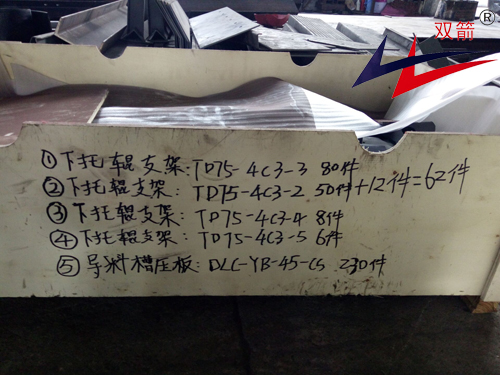 双箭®
①下托辊支架:TD75-4C3-3 80件
②下托辊支架:TD75-4C3-2 50件+12件=62件
③下托辊支架:TD75-4C3-4 8件
④下托辊支架:TD75-4C3-5 6件
⑤导料槽压板:DLC-YB-45-CS 230件